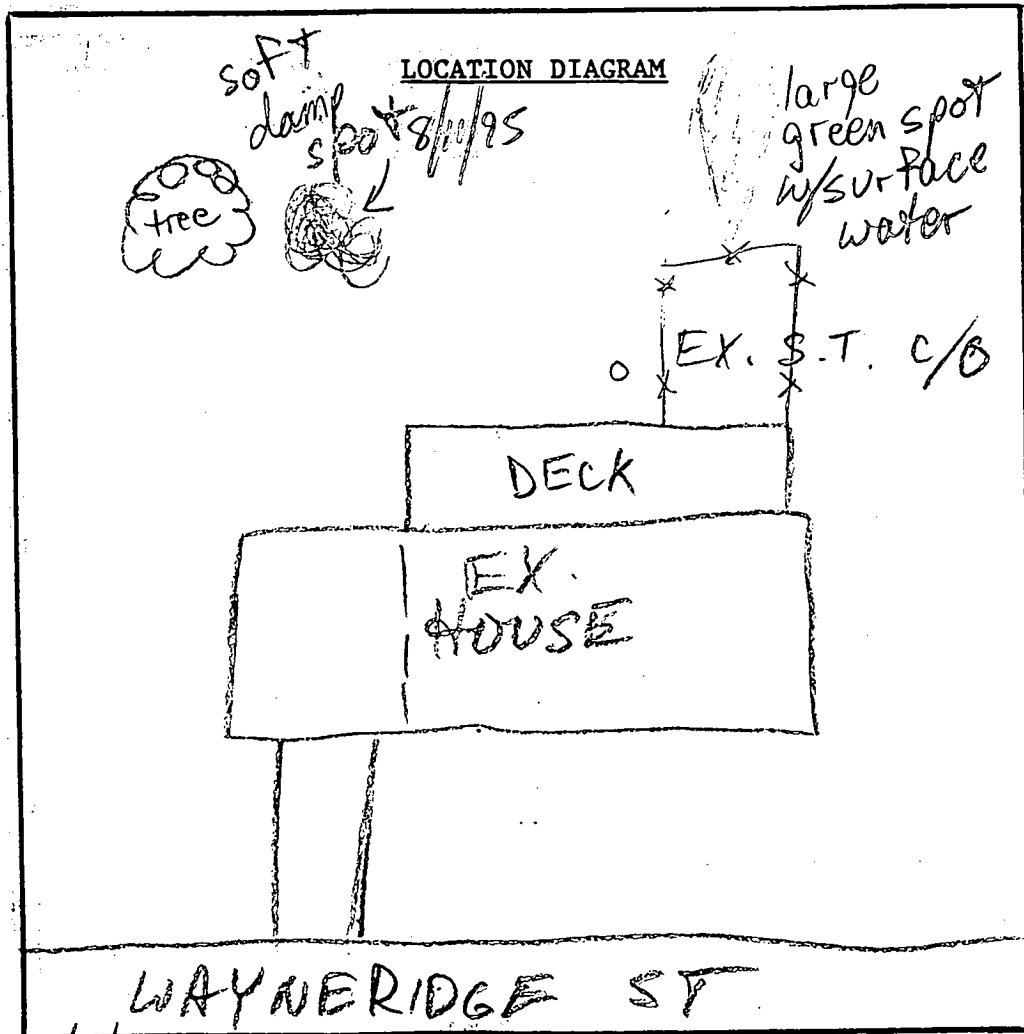 LOCATION DIAGRAM
soft
damp
spot
8/11/95
large
green spot
w/surface
water
tree
EX. S.T. C/O
DECK
EX.
HOUSE
WAYNERIDGE ST